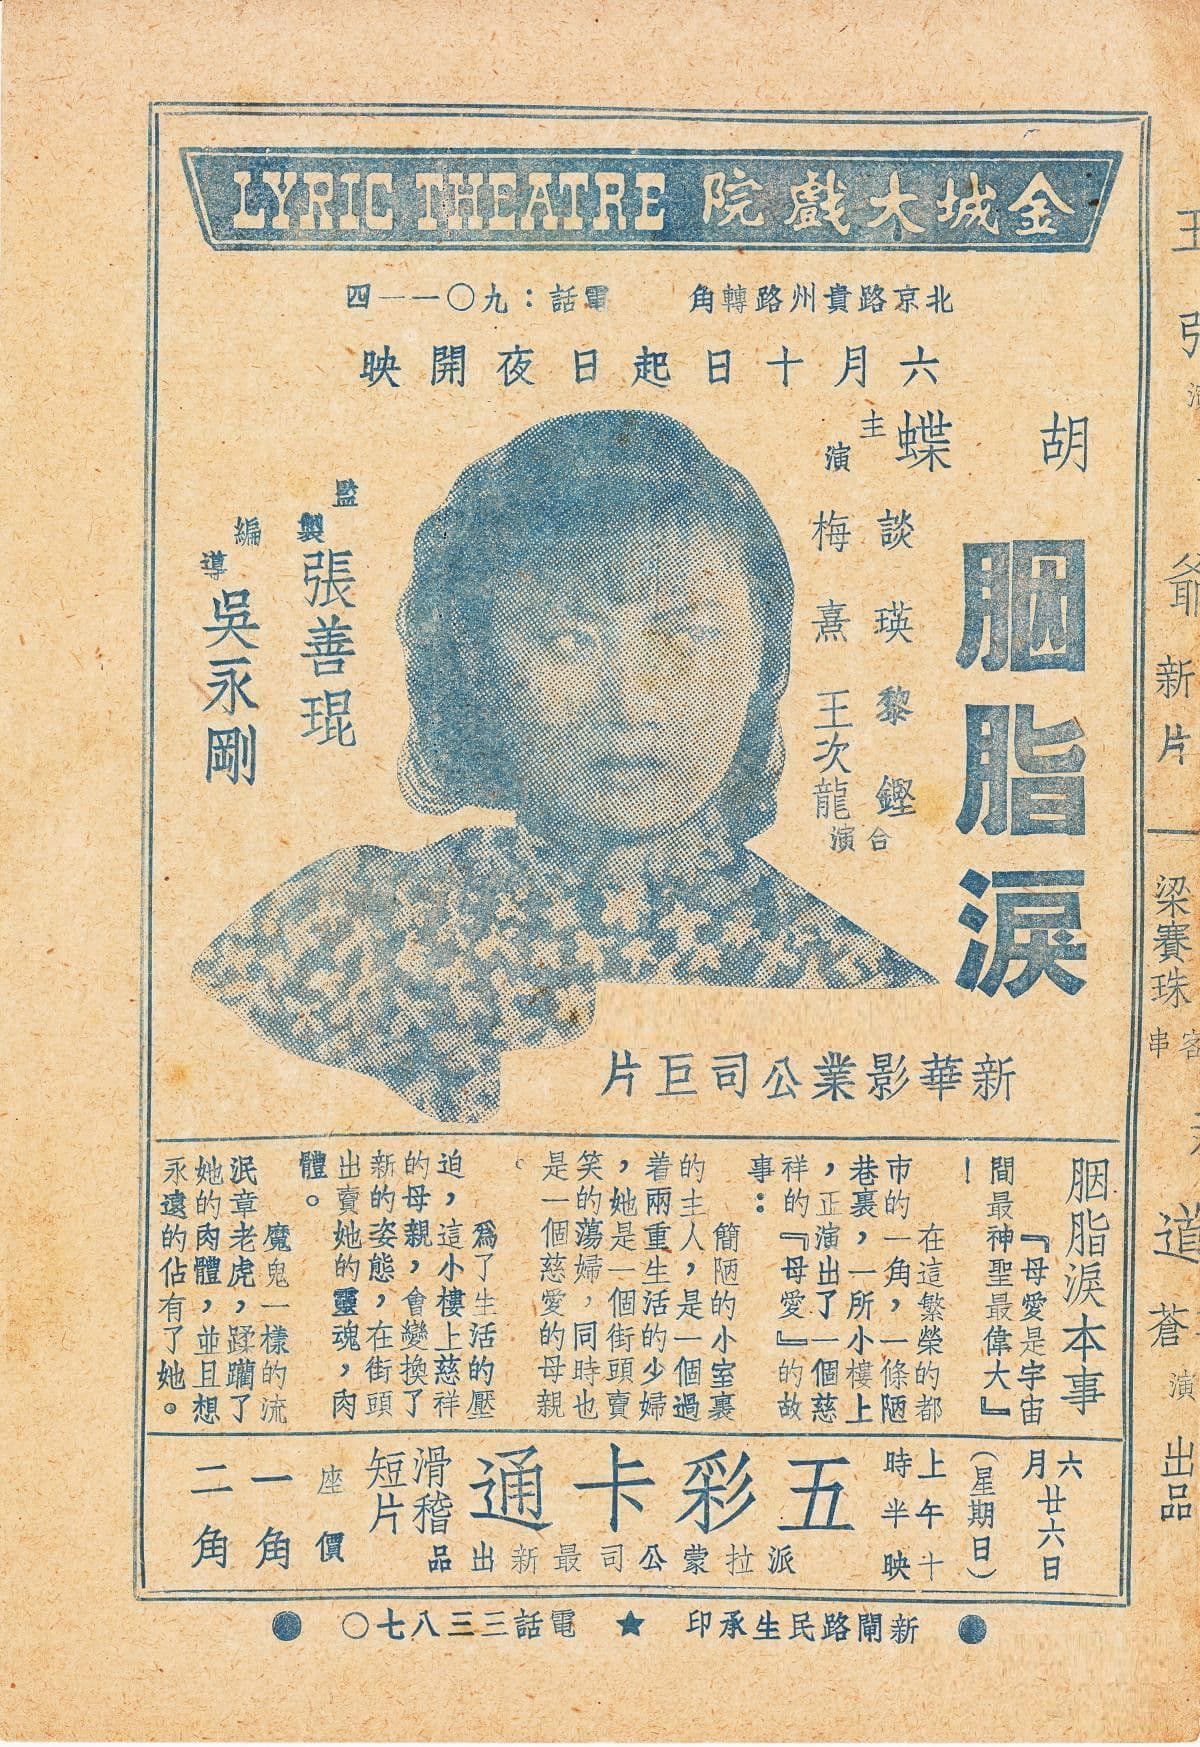 金城大戲院 LYRIC THEATRE
北京路貴州路轉角 電話：九〇一一四
六月十日起日夜開映
胡蝶
主演
胭脂淚
談瑛 黎鏗
梅熹 王次龍
合演
監製 張善琨
編導 吳永剛
新華影業公司巨片
胭脂淚本事
『母愛是宇宙
間最神聖最偉大』
！
在這繁榮的都
市的一角，一條陋
巷裏，一所小樓上
，正演出了一個慈
祥的『母愛』的故
事：
簡陋的小室裏
的主人，是一個過
着兩重生活的少婦
，她是一個街頭賣
笑的蕩婦，同時也
是一個慈愛的母親
。
爲了生活的壓
迫，這小樓上慈祥
的母親，會變換了
新的姿態，在街頭
出賣她的靈魂，肉
體。
魔鬼一樣的流
泯章老虎，蹂躪了
她的肉體，並且想
永遠的佔有了她。
六月廿六日
（星期日）
上午十
時半映
五彩卡通
滑稽
短片
派拉蒙公司最新出品
座價
一角
二角
●新閘路民生承印 ★ 電話三三八七〇●
王
爺
新片
梁賽珠
客串
道
蒼
演
出品